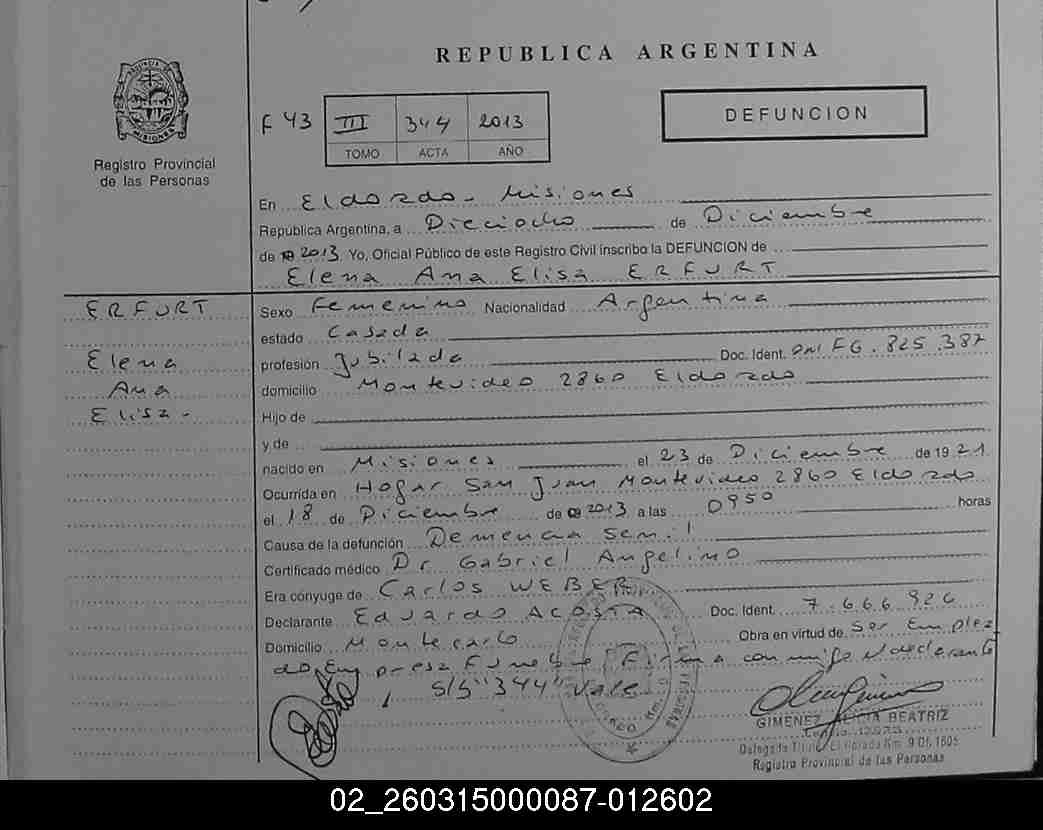 REPUBLICA ARGENTINA
F 43 III 344 2013
TOMO ACTA AÑO
DEFUNCION
Registro Provincial
de las Personas
En Eldorado - Misiones
República Argentina, a Dieciocho de Diciembre
de 2013. Yo, Oficial Público de este Registro Civil inscribo la DEFUNCION de
Elena Ana Elisa ERFURT
ERFURT
Elena
Ana
Elisa -
Sexo Femenino Nacionalidad Argentina
estado Casada
profesión Jubilada Doc. Ident. DNI F6.825.387
domicilio Montevideo 2860 Eldorado
Hijo de
y de
nacido en Misiones el 23 de Diciembre de 1921
Ocurrida en Hogar San Juan Montevideo 2860 Eldorado
el 18 de Diciembre de 2013 a las 0950 horas
Causa de la defunción Demencia Senil
Certificado médico Dr Gabriel Angelino
Era cónyuge de Carlos WEBER
Declarante Eduardo ACOSTA Doc. Ident. 7.666.926
Domicilio Montecarlo Obra en virtud de Ser Emplea
do Empresa Funebre Firma conmigo el declarante
S/S "344" Vale
GIMENEZ ALICIA BEATRIZ
Delegada Titular El Dorado Km. 9 Of. 1605
Registro Provincial de las Personas
02_260315000087-012602